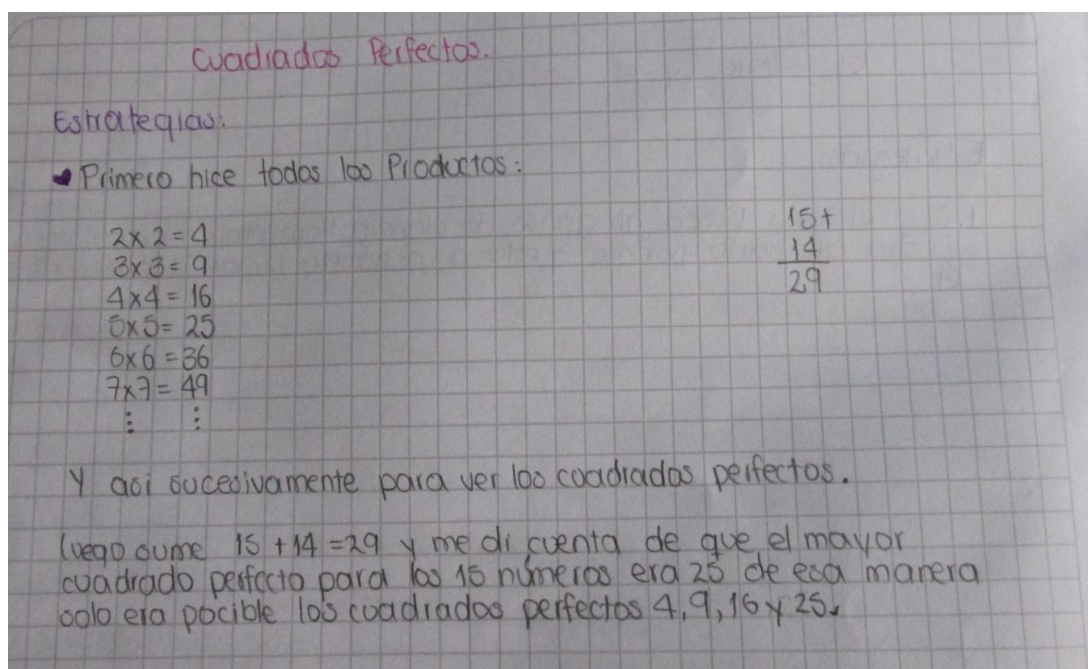 Cuadrados Perfectos.
Estrategias:
• Primero hice todos los Productos:
15+
14
29
2x2=4
3x3=9
4x4=16
5x5=25
6x6=36
7x7=49
⋮ ⋮
Y asi sucesivamente para ver los coadrados perfectos.
luego sume 15+14=29 y me di cuenta de que el mayor
cuadrado perfecto para los 15 números era 25 de esa manera
solo era pocible los coadrados perfectos 4, 9, 16 y 25.